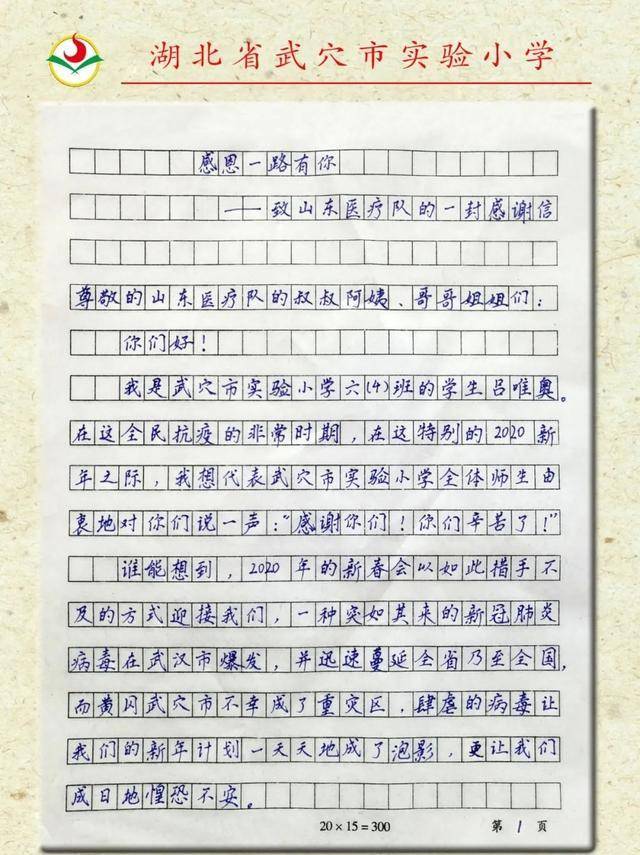 湖北省武穴市实验小学
感恩一路有你
——致山东医疗队的一封感谢信
尊敬的山东医疗队的叔叔阿姨、哥哥姐姐们:
你们好!
我是武穴市实验小学六(4)班的学生吕唯奥。
在这全民抗疫的非常时期,在这特别的2020新
年之际,我想代表武穴市实验小学全体师生由
衷地对你们说一声:“感谢你们!你们辛苦了!”
谁能想到,2020年的新春会以如此措手不
及的方式迎接我们,一种突如其来的新冠肺炎
病毒在武汉市爆发,并迅速蔓延全省乃至全国,
而黄冈武穴市不幸成了重灾区,肆虐的病毒让
我们的新年计划一天天地成了泡影,更让我们
成日地惶恐不安。
20×15=300 第1页